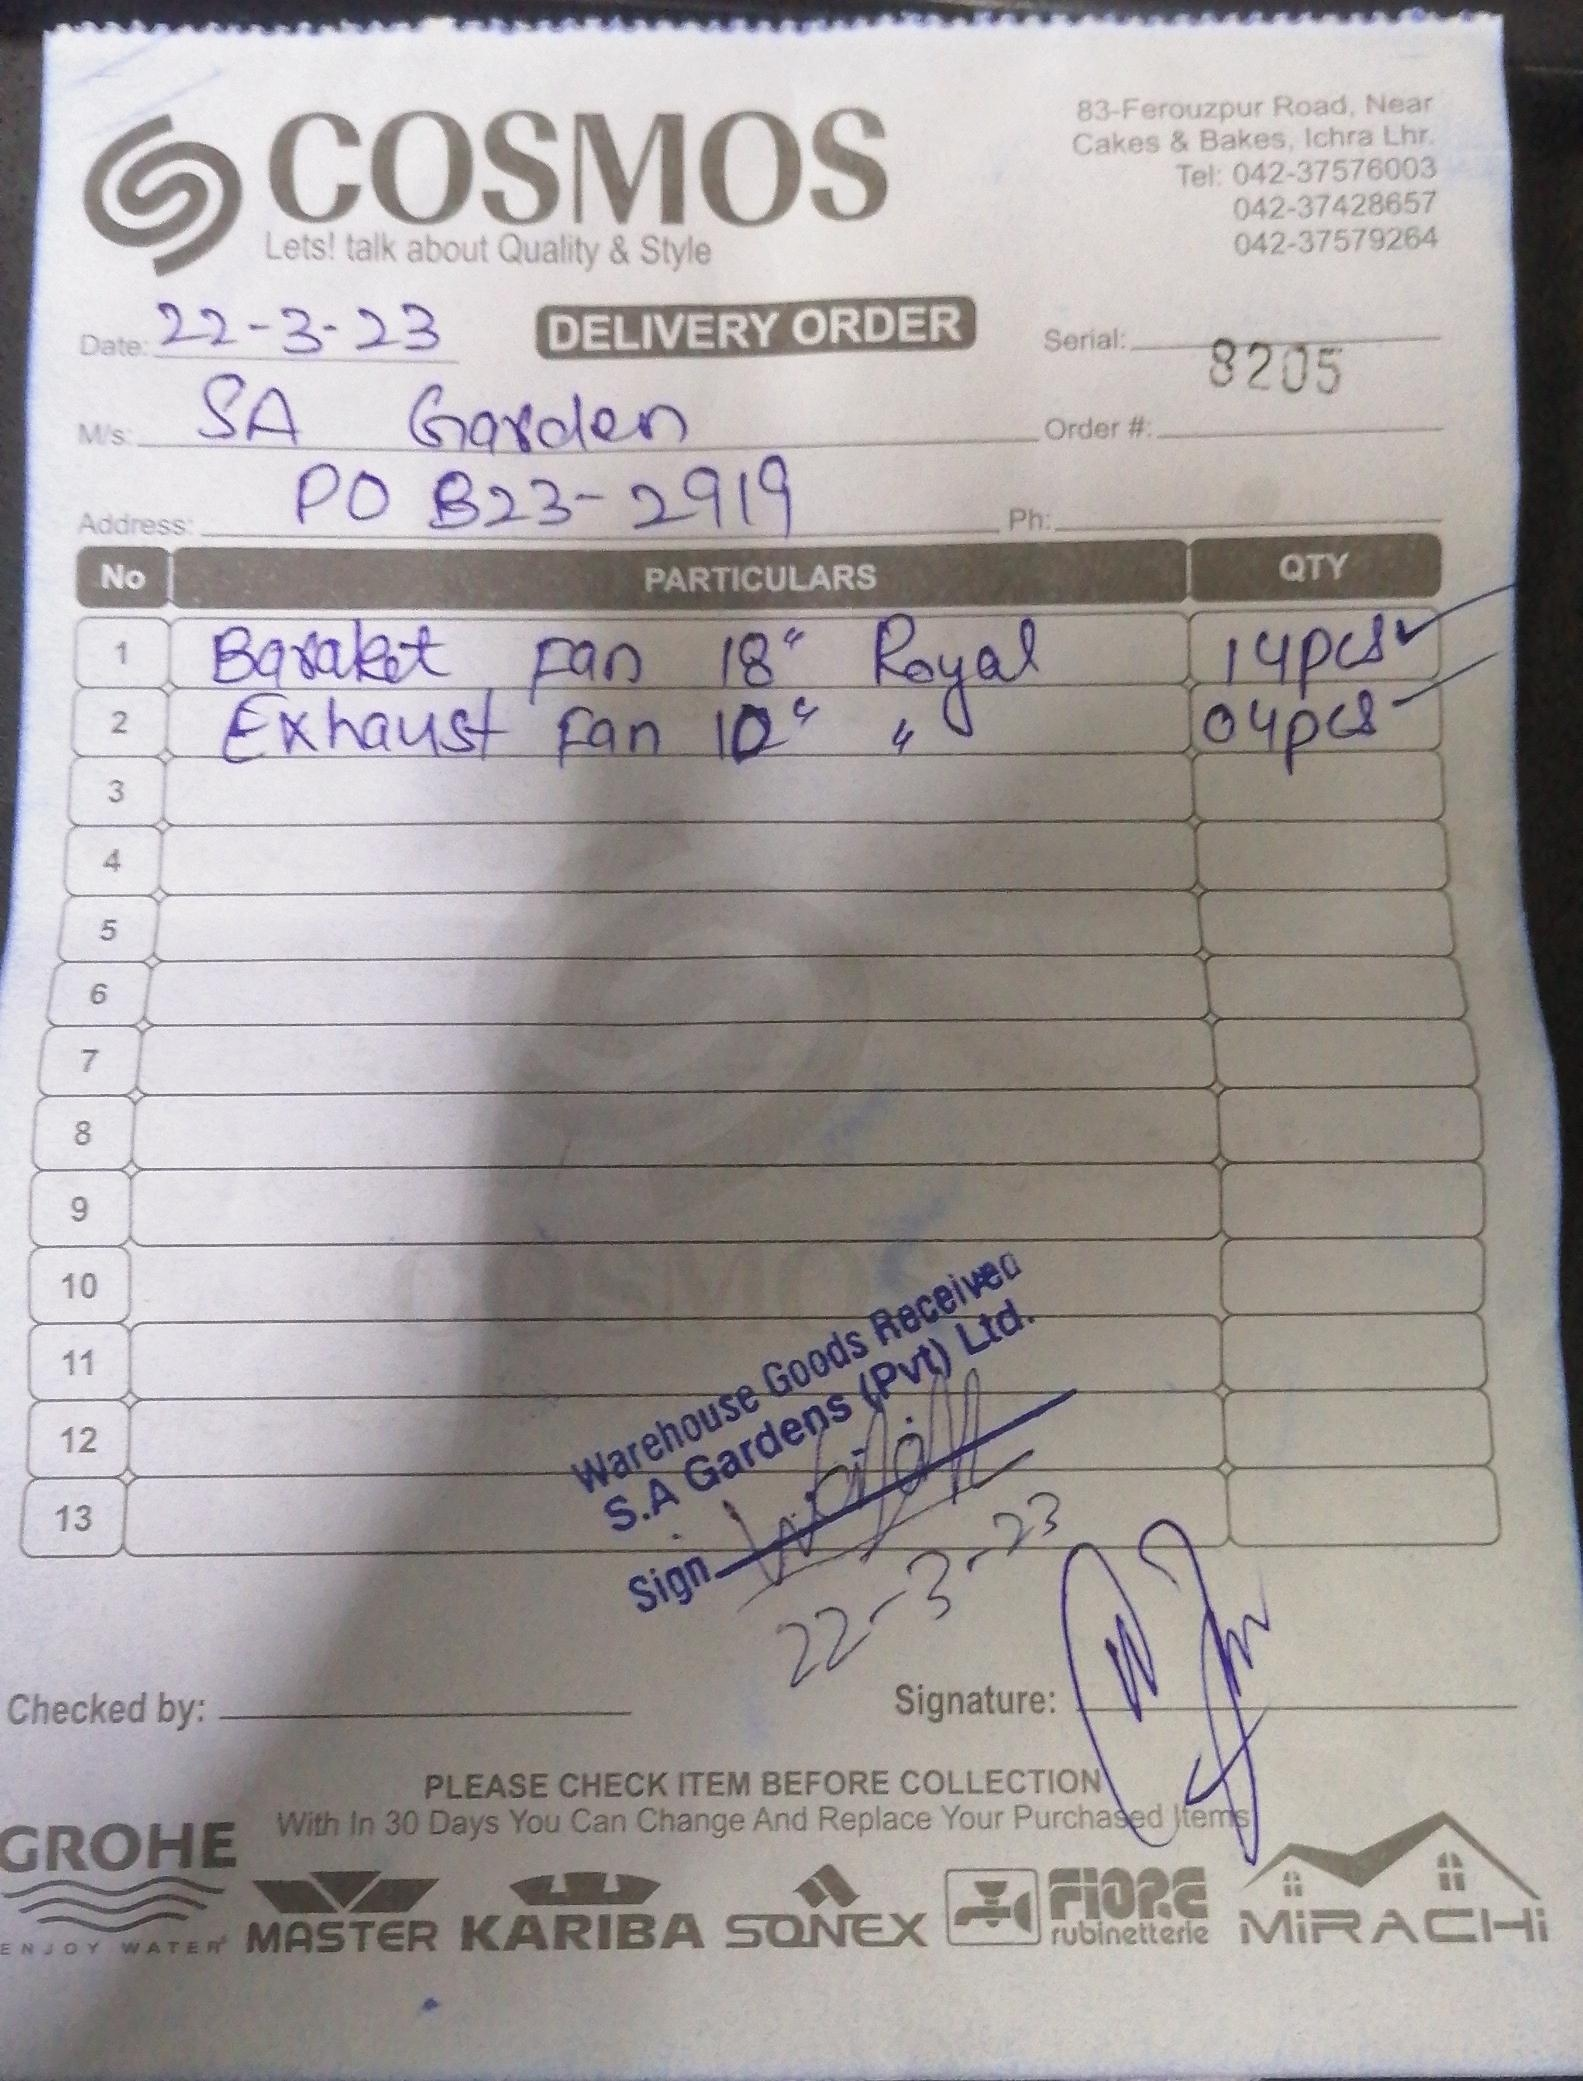 COSMOS
Lets! talk about Quality & Style
83-Ferouzpur Road, Near
Cakes & Bakes, Ichra Lhr.
Tel: 042-37576003
042-37428657
042-37579264
Date: 22-3-23
DELIVERY ORDER
Serial: 8205
M/s: SA Garden
Order #:
Address: PO B23-2919
Ph:
No PARTICULARS QTY
1 Baraket Fan 18" Royal 14pcs
2 Exhaust Fan 10" " 04pcs
3
4
5
6
7
8
9
10
11
12
13
COSMOS
Warehouse Goods Received
S.A Gardens (Pvt) Ltd.
Sign
22-3-23
Checked by:
Signature:
PLEASE CHECK ITEM BEFORE COLLECTION
With In 30 Days You Can Change And Replace Your Purchased Items
GROHE
ENJOY WATER
MASTER
KARIBA
SONEX
FIORE
rubinetterie
MiRACHi